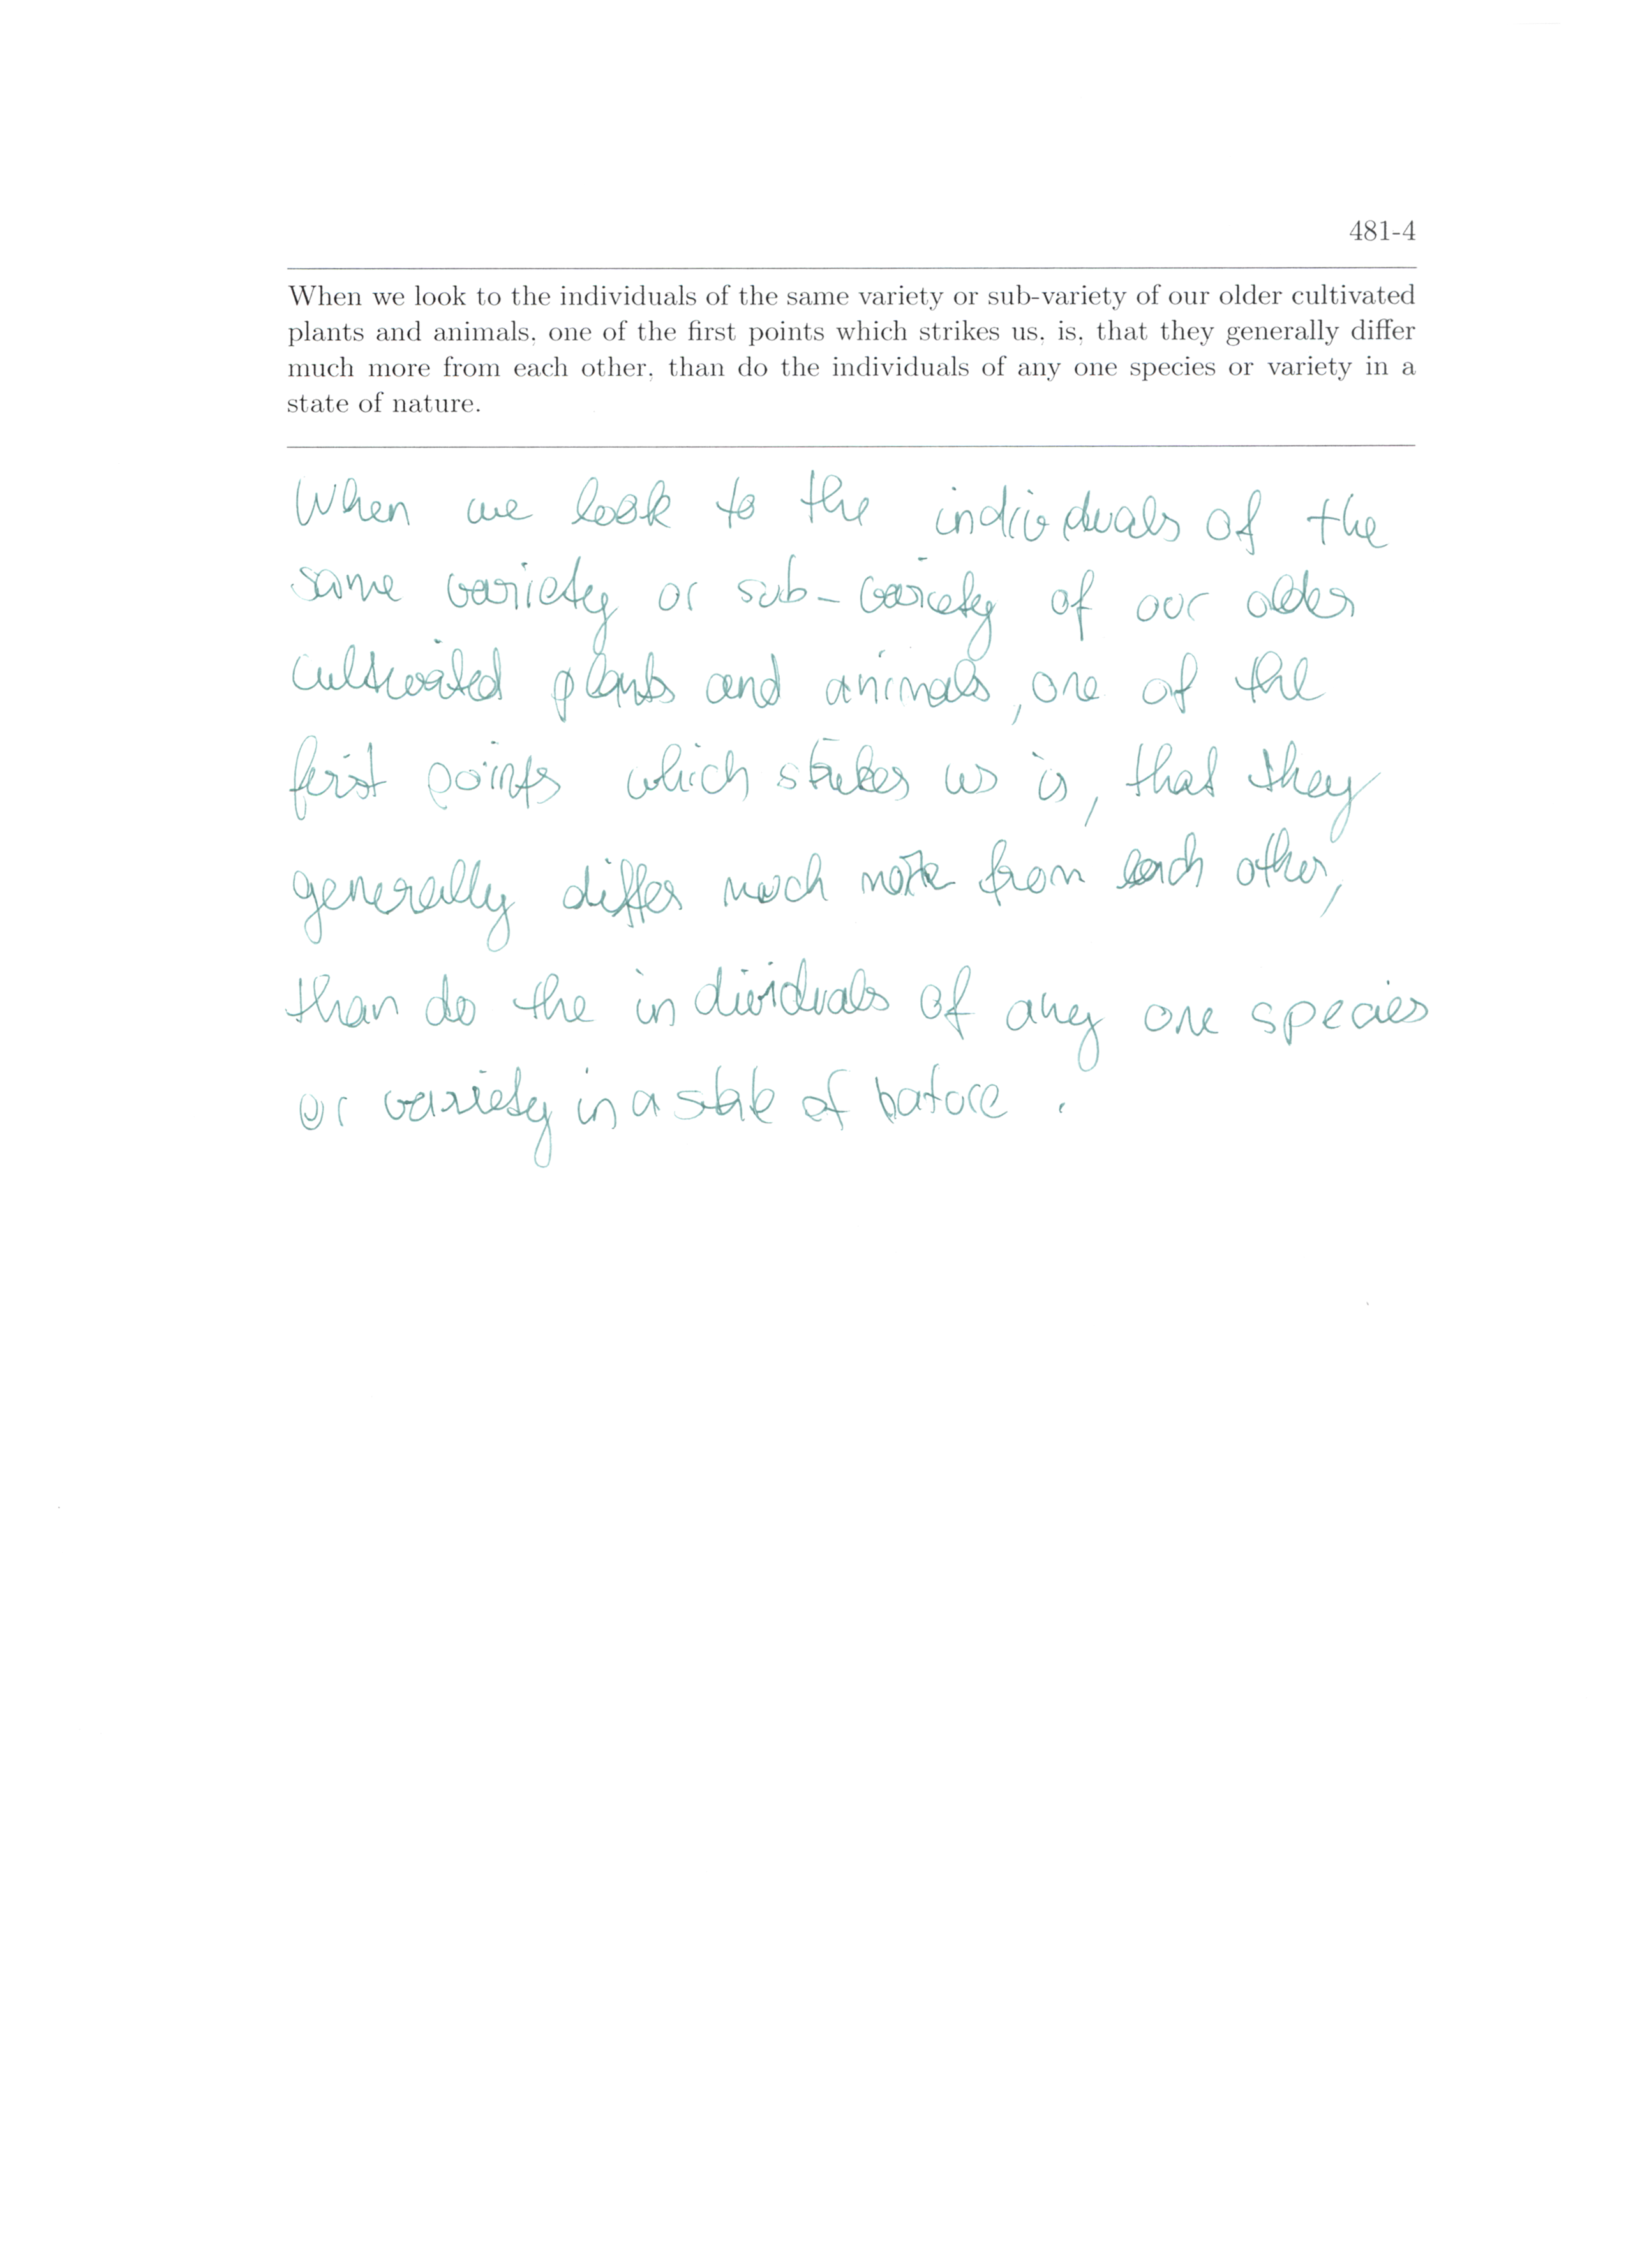 481-4
When we look to the individuals of the same variety or sub-variety of our older cultivated
plants and animals, one of the first points which strikes us, is, that they generally differ
much more from each other, than do the individuals of any one species or variety in a
state of nature.
When we look to the individuals of the
same variety or sub-variety of our older
cultivated plants and animals, one of the
first points which strikes us is, that they
generally differ much more from each other,
than do the individuals of any one species
or variety in a state of nature.